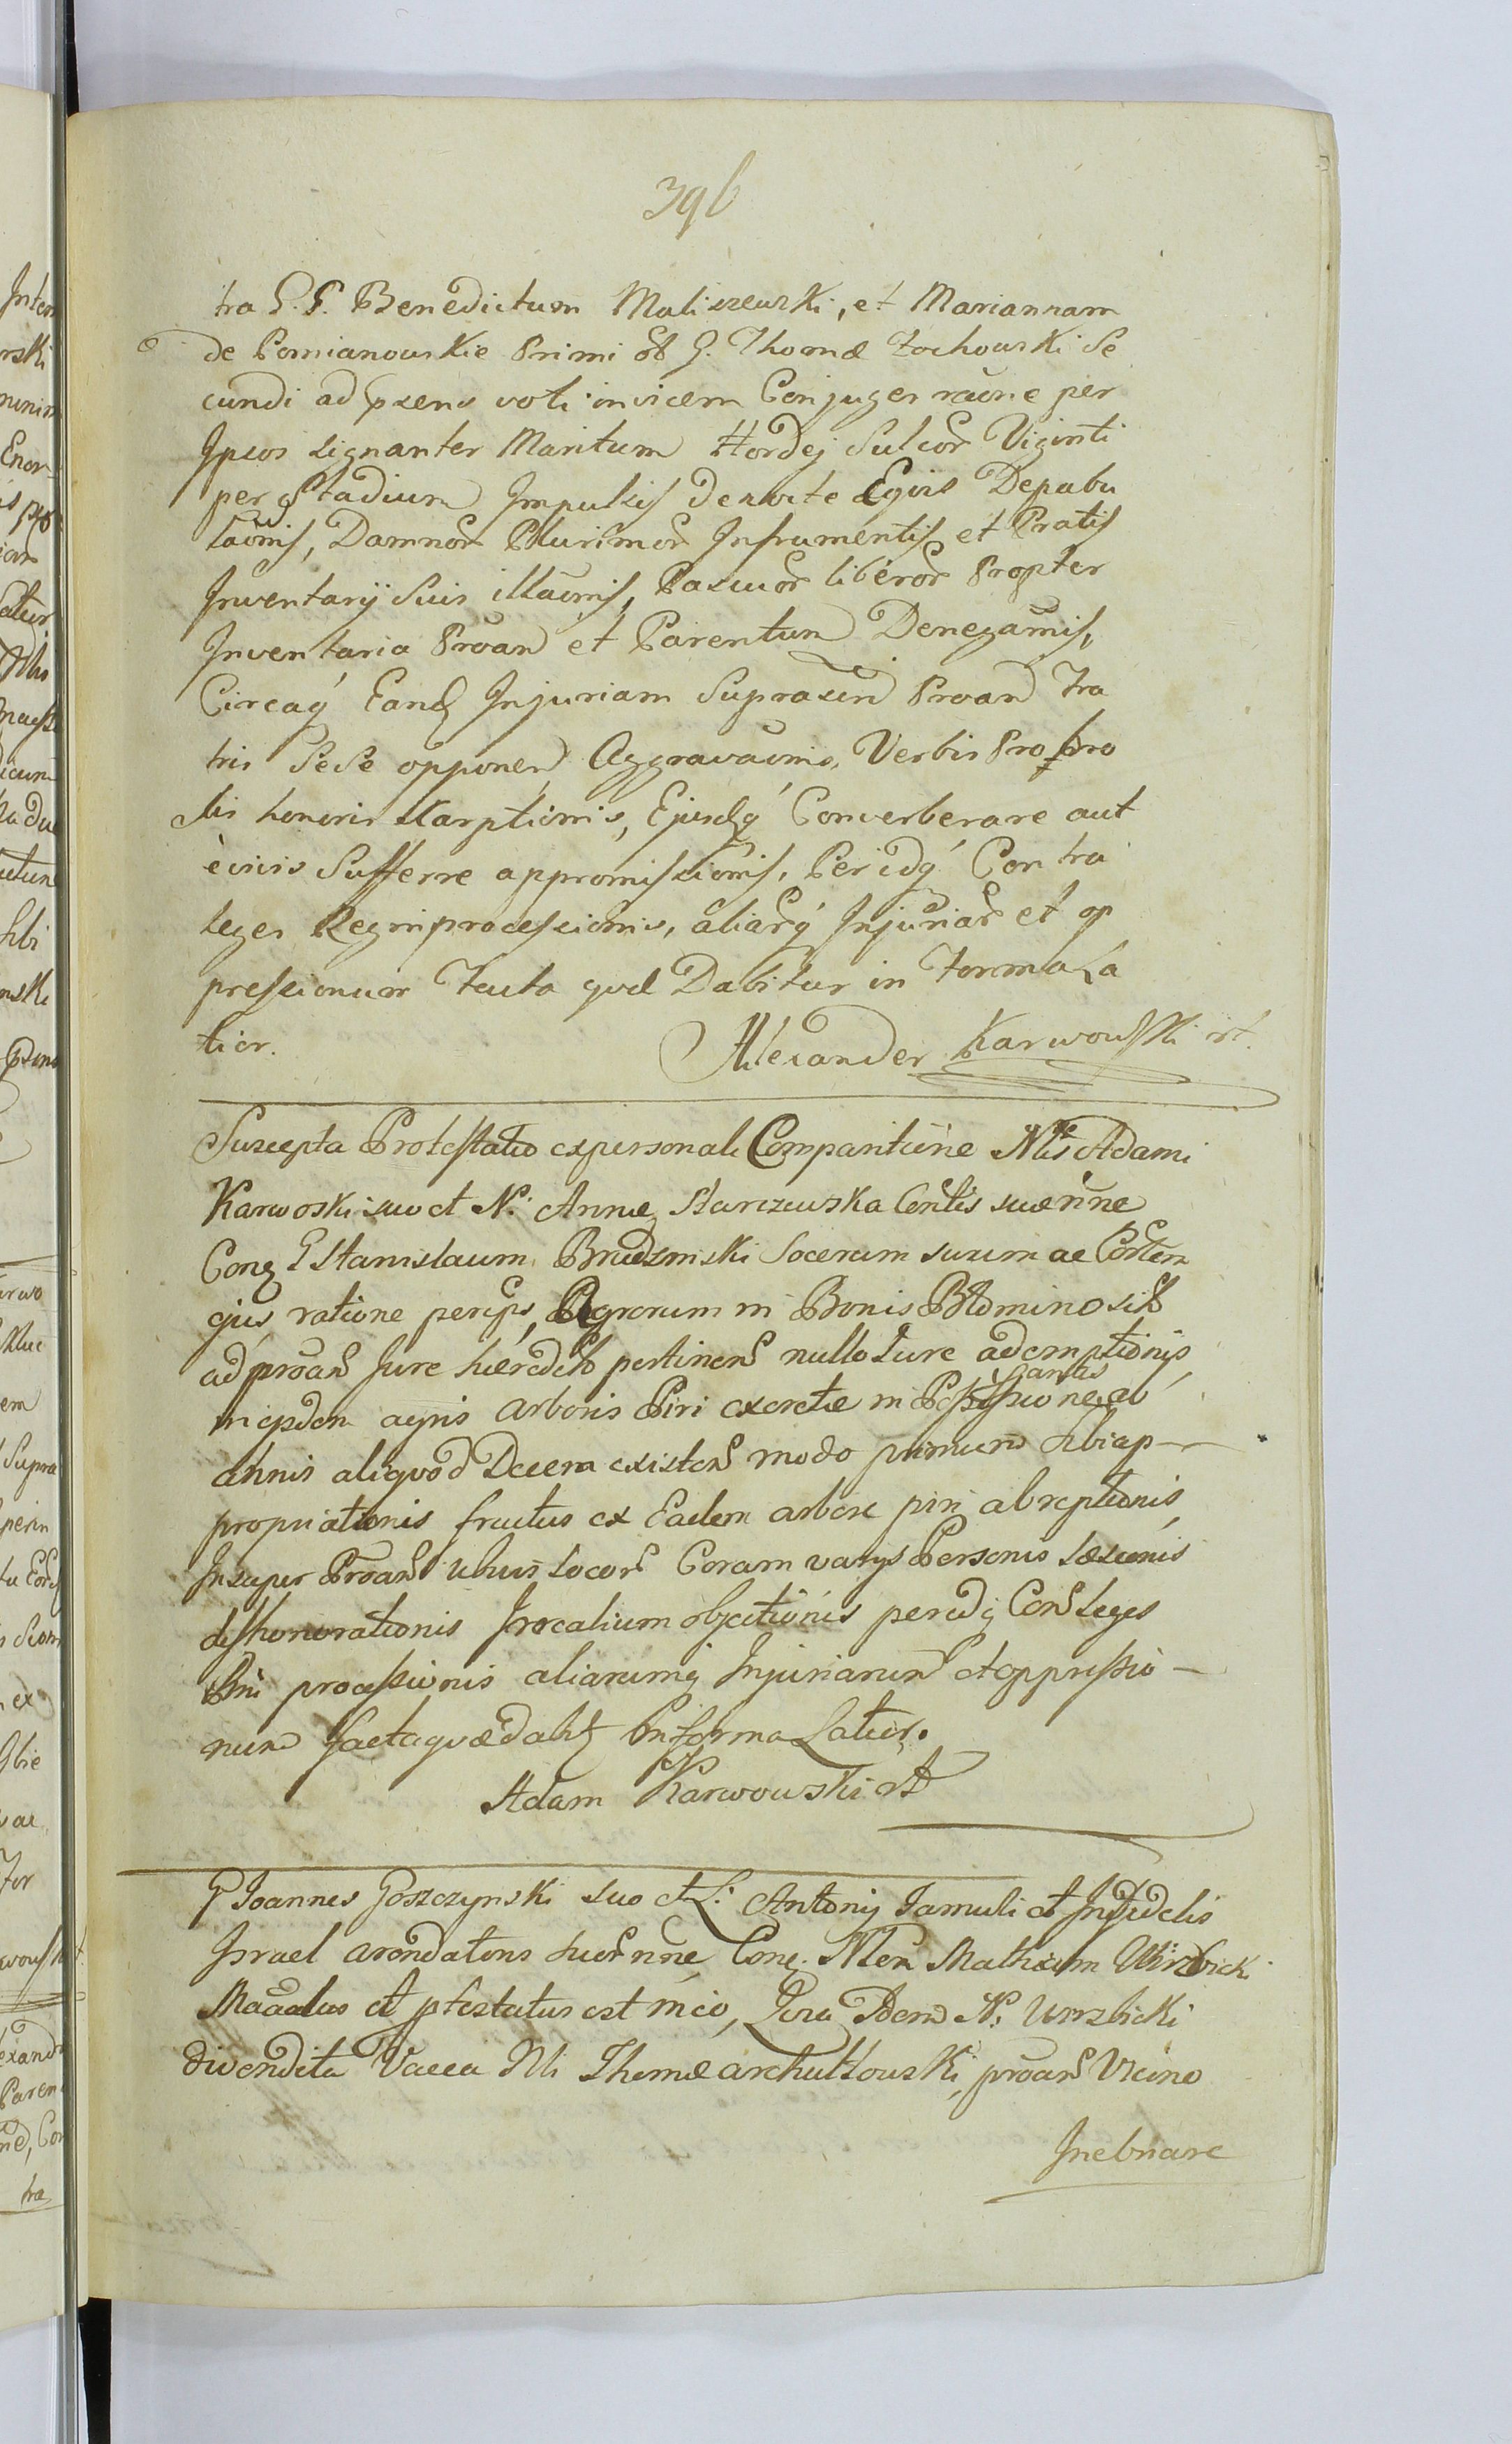 396
tra G. G. Benedictum Maliszewski, et Mariannam
de Pomianowskie Primi ob G. Thomæ Zochowski Se
cundi ad pxens voti invicem Conjuges raõne per
Ipsos signanter Maritum Hordej Sulcor Viginti
per Stadium Impulsis de nocte Eqvis Depabu
laõnis, Damnor Plurimor In frumentis et Pratis
Inventarÿ Suis illaõnis, Pascuor liberor Propter
Inventaria Proan et Parentum Denegaõnis,
Circaq Eand Injuriam Suprascen Proan Fra
tris Se Se opponen Aggravaõnis, Verbis Pro pro
bis honoris Karptionis, Ejusdq Converberare aut
è vivis Sufferre appromissionis, Per idq Contra
leges Regni processionis, aliarq Injuriar et op
pressionum Facta qvæ Dabitur in Forma La
tior.
Alexander Karwowski rt.
Suscepta Protestatio ex personali Comparitione Nlis Adami
Karwoski suo et N. Annæ Starczewska Contis suæ nne
Conq G Stanislaum Brudzinski Socerum suum ac Contem
ejus ratione per ips, Agrorum in Bonis
ad proan Jure hæredit pertinen nullo Jure ademptionis,
in ejsdem agris arboris Piri excretæ in Possessione ab
stantis
annis aliqvod Decem existen modo primum sibi ap-
propriationis fructus ex Eadem arbore piri abreptionis,
Insuper Proan Coram varys Personis Læsionis
dishonorationis Jrocalium objectionis per idq Con Leges
Rni processionis aliarumq Injuriarum et oppressio-
num facta qvæ dabit In forma Latior.
Adam Karwowski rt
G Joannes Goszczynski suo et L. Antonij Famuli et Infidelis
Israel arendatoris suor nne Conq. Nlem Mathæum Wirzbicki
Maãdus et ptestatus est in eo, Qvia Idem N. Wirzbicki
divendita Vacca Nli Thomæ archutowski, proan Vicino
Inebriare